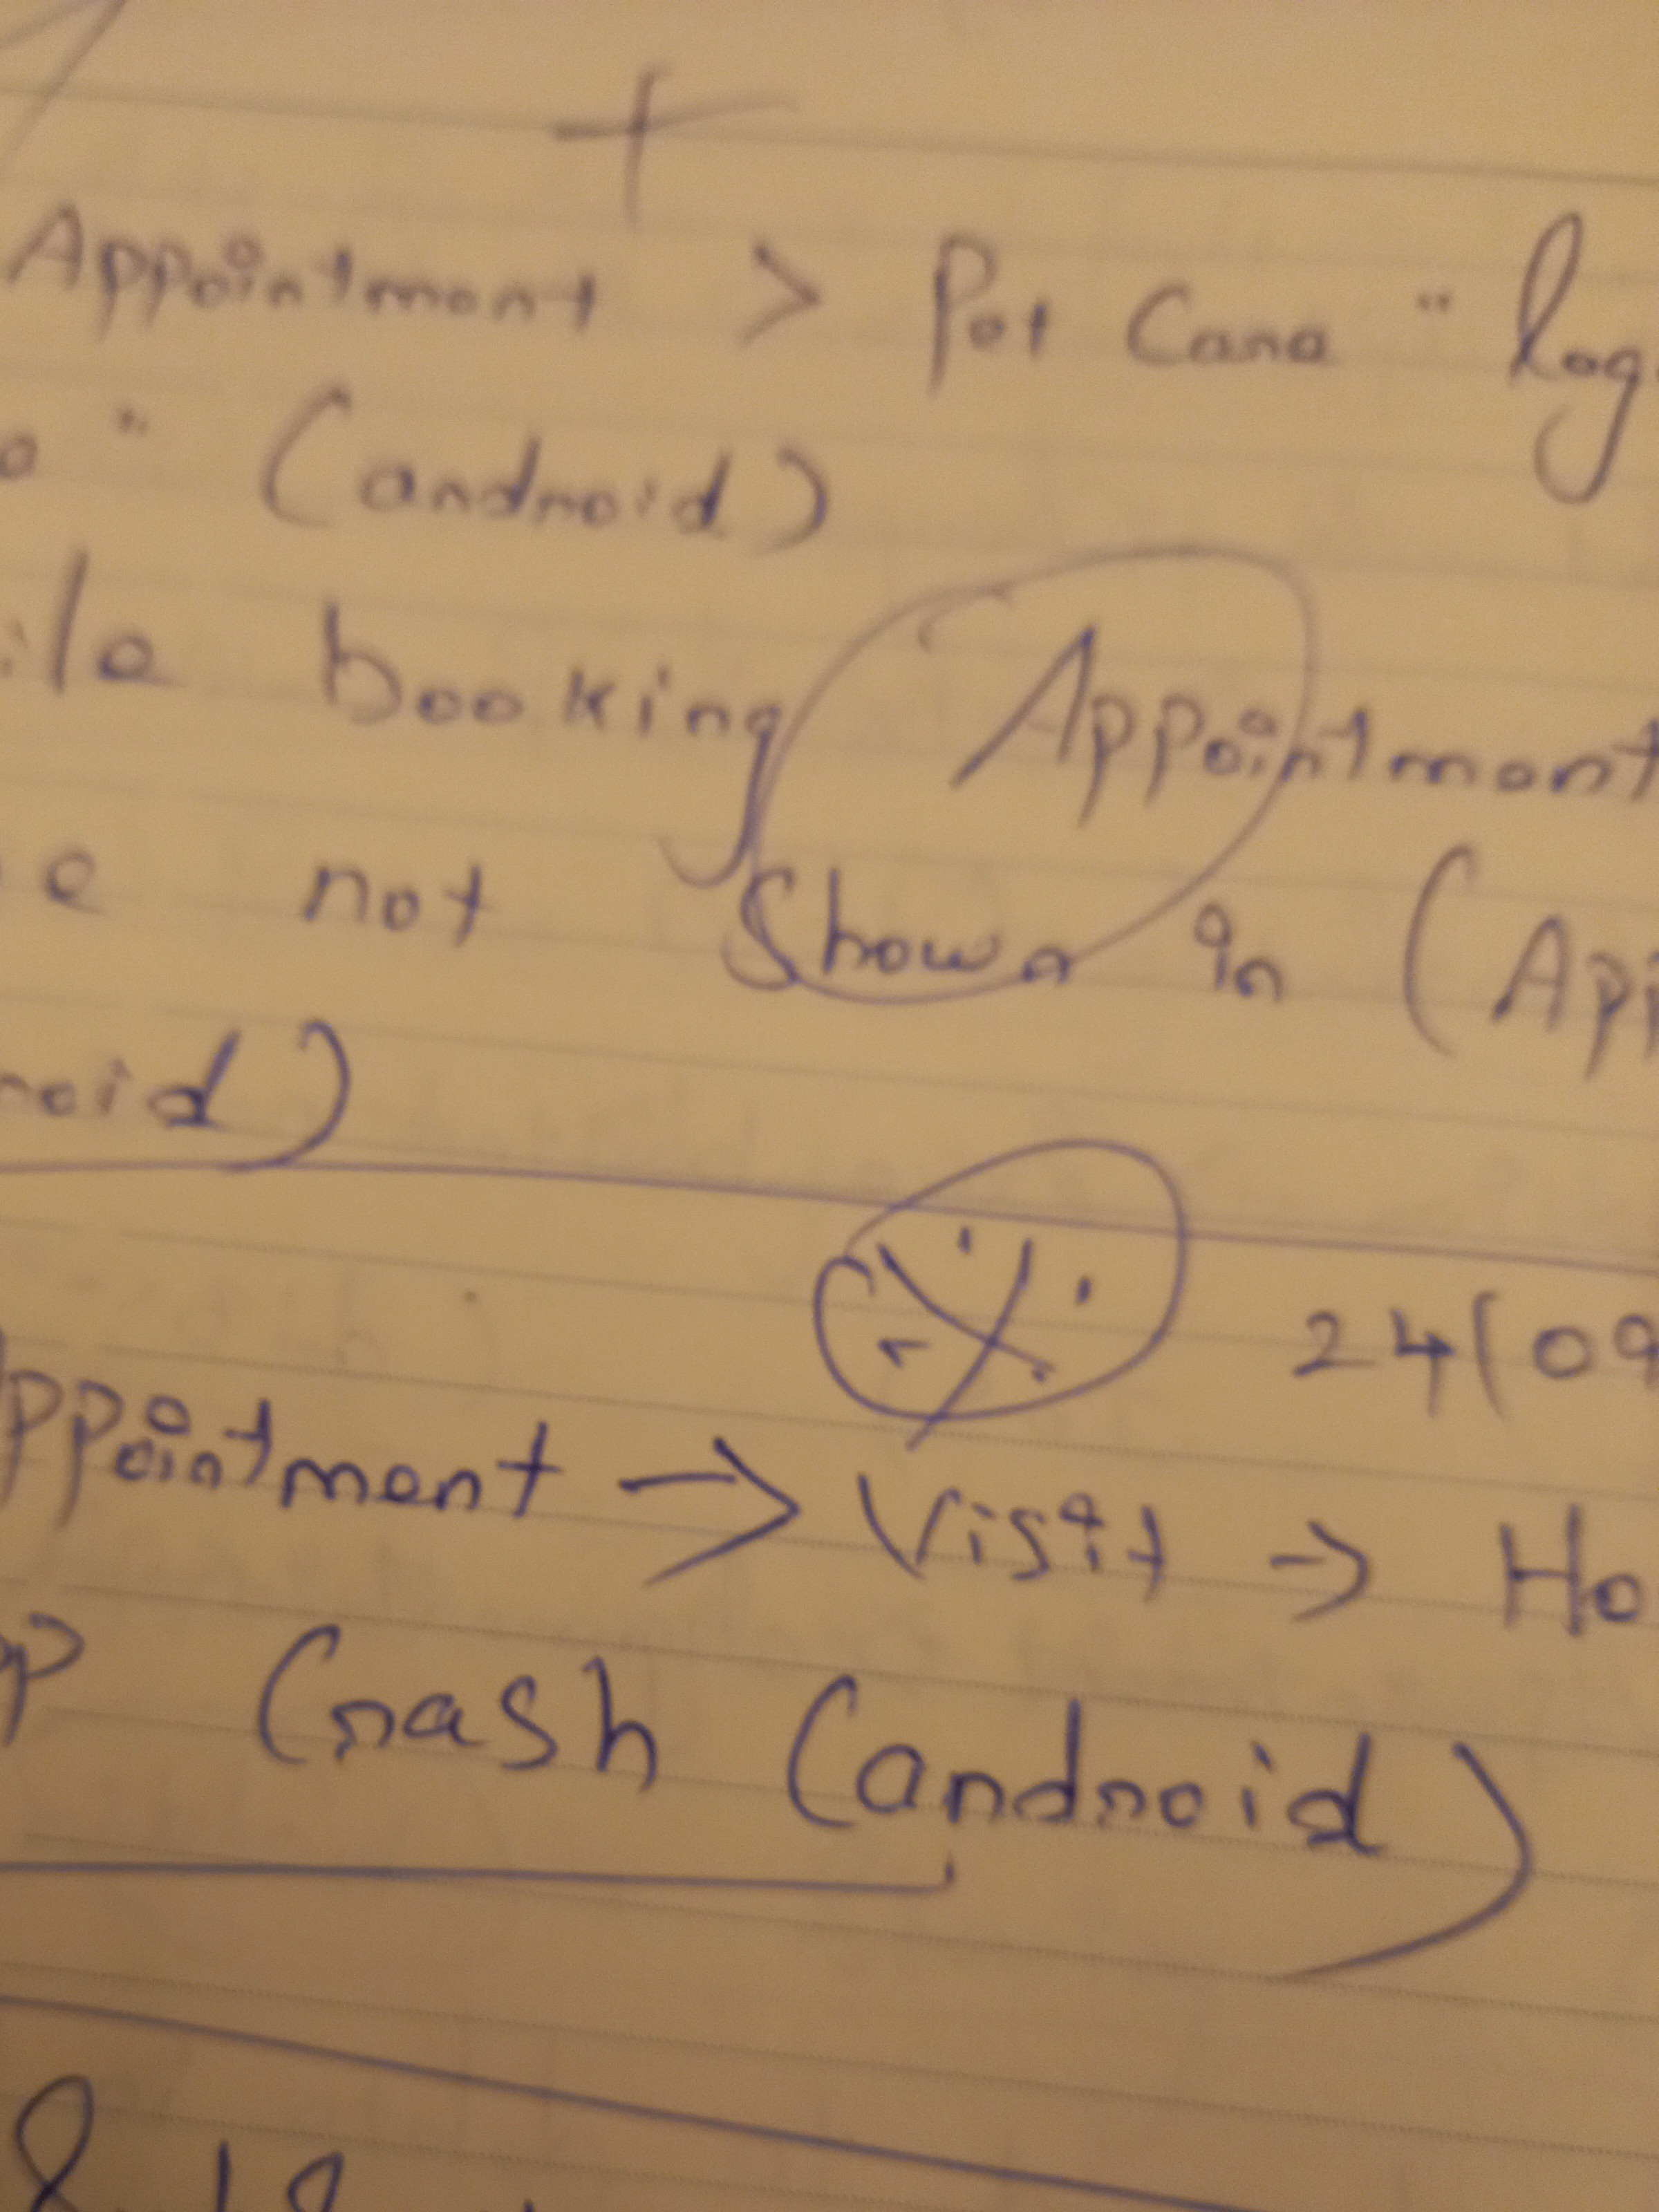 Appointment > Pet Care "log
o" (android)
ile booking Appointment
e not Shown in (App
roid)
24/09
Appointment → Visit → Ho
pp Crash (android)